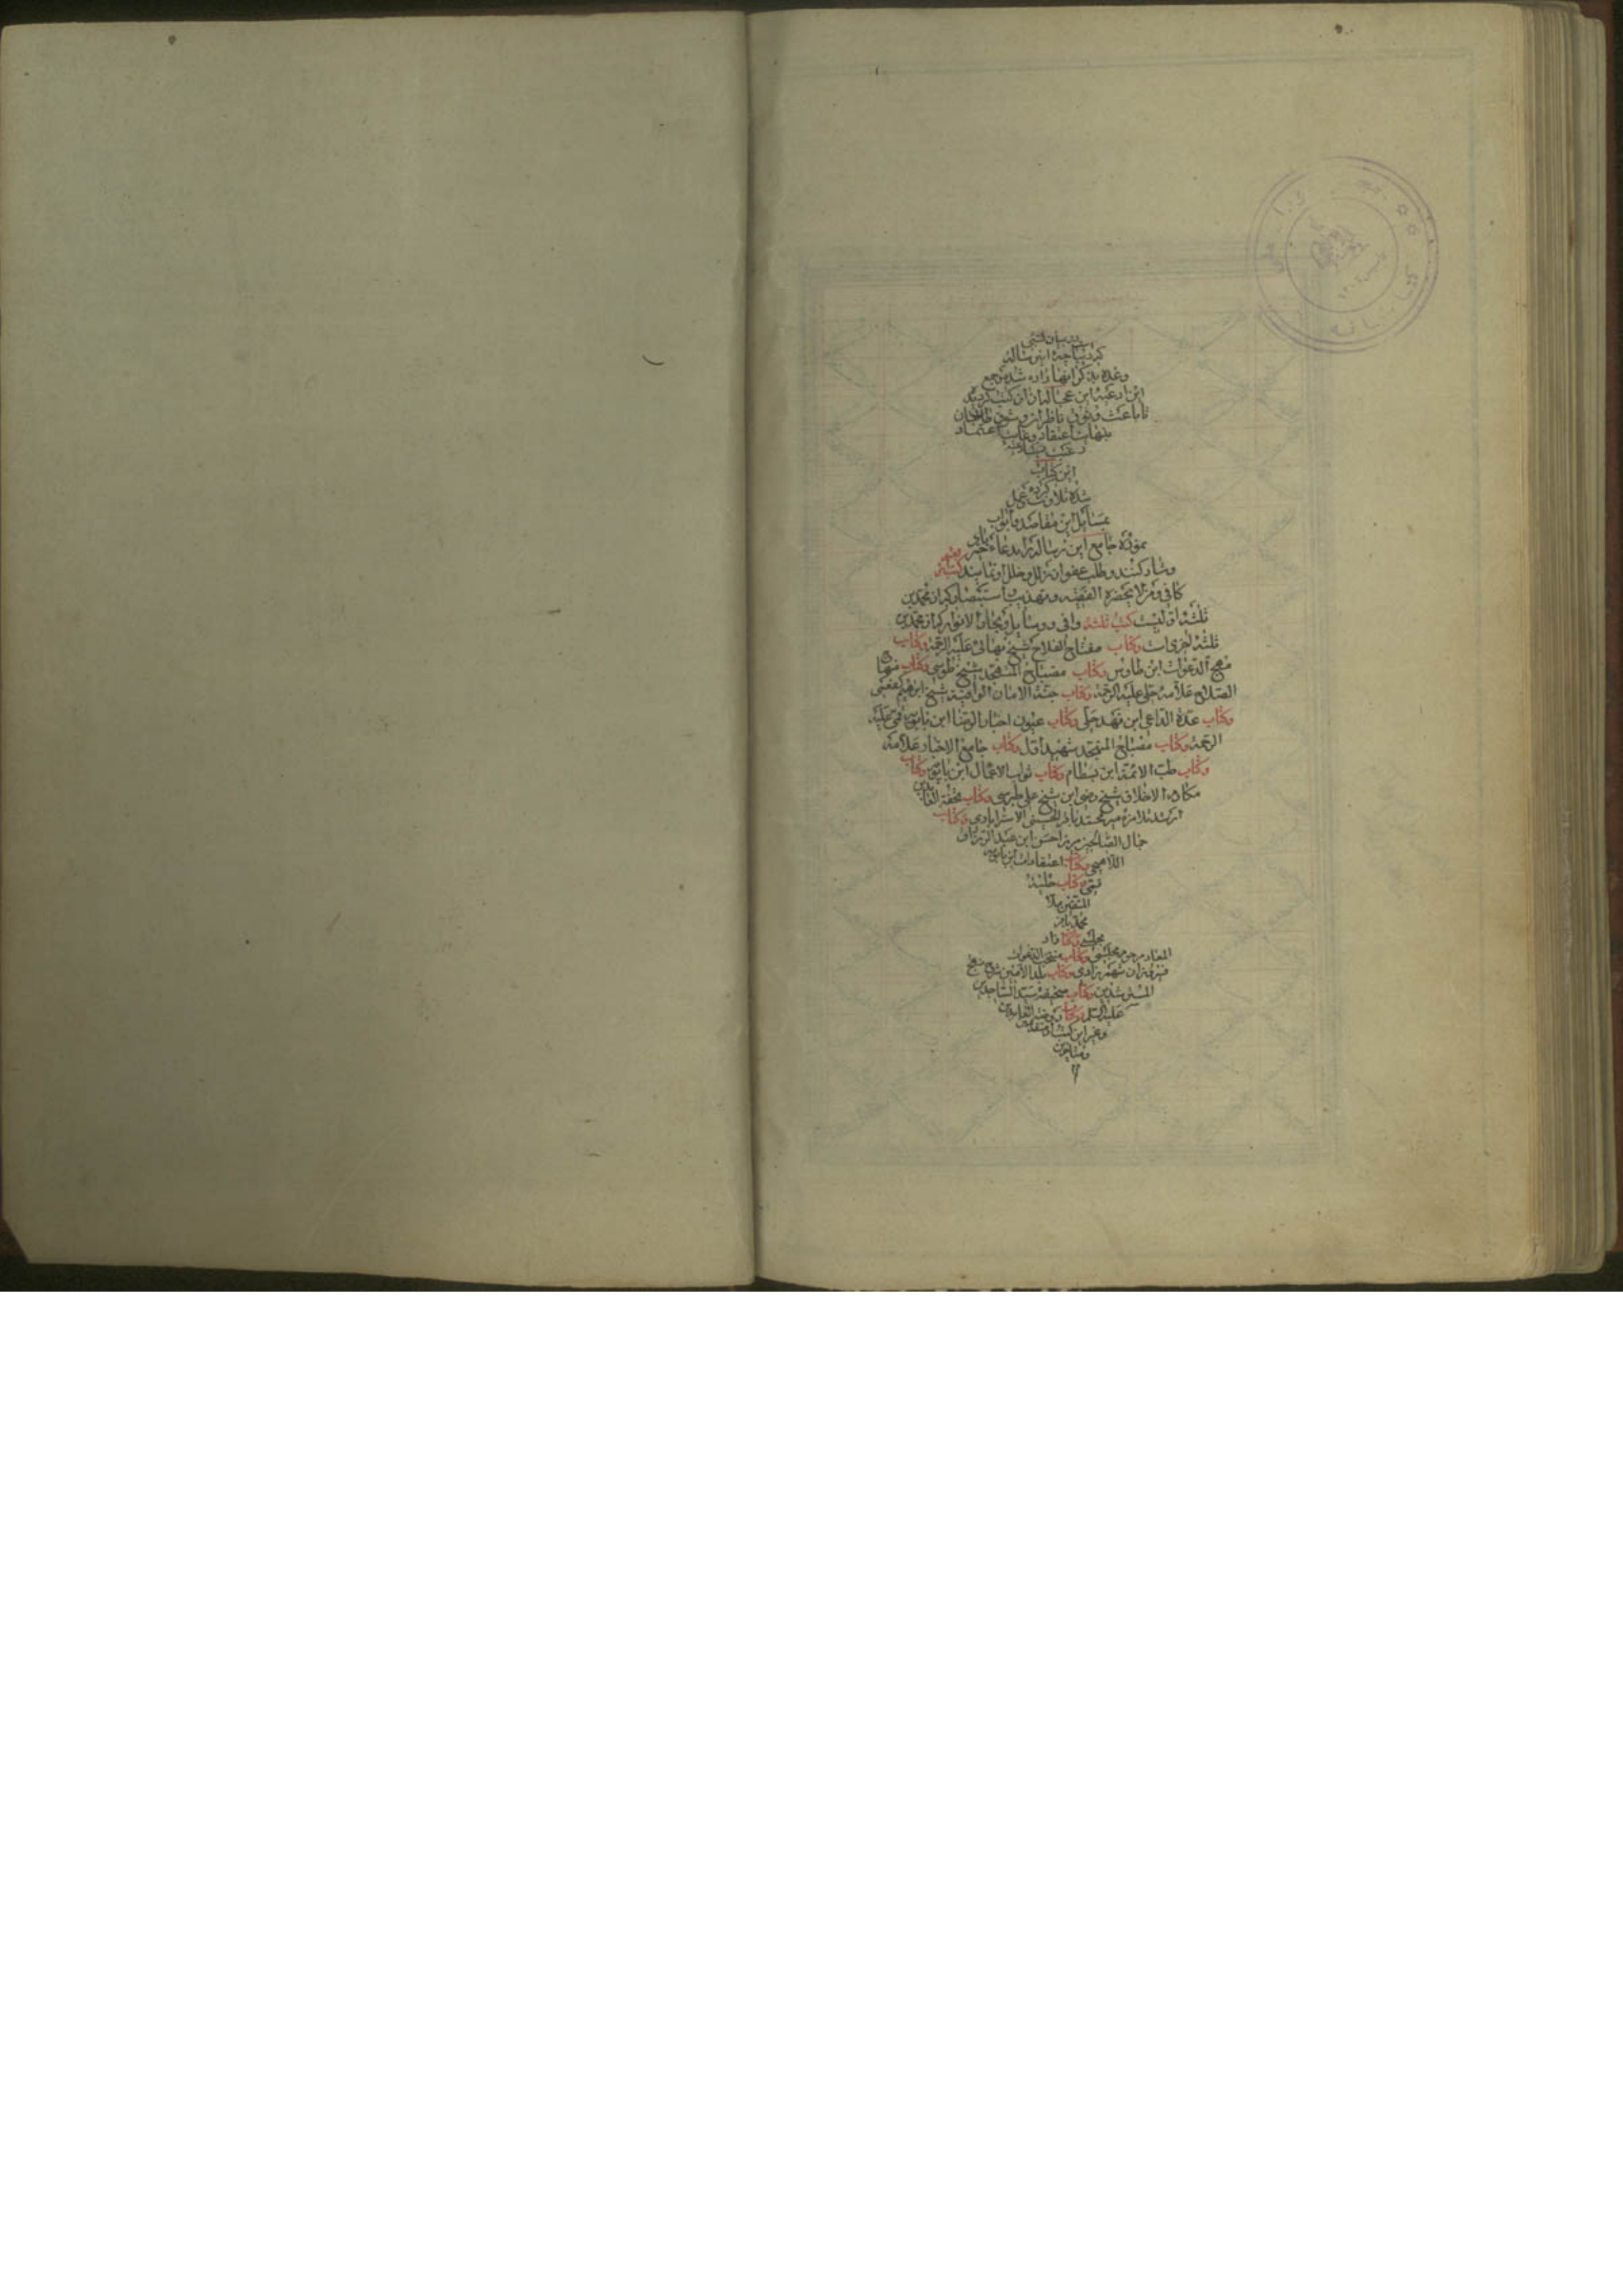 در بیان کتبی
که در دیباچه این رساله
وعده بذکر اینها داده شد و جمع
این ادعیه این عجاله ازان کتب گردید
تا باعث وثوق ناظران و شوق طالبان
بنهایت اعتقاد و غایت اعتماد
رغبت
این کتاب
شده تلاوت کرده عمل
بمسایل این مقاصد و ابواب
نموده جامع این رساله را بدعاء خیر یاد
و شاد کنند و طلب عفو از زلل و خلل او نمایند کتب
کافی و من لا یحضره الفقیه و تهذیب و استبصار که از محمدین
ثلثه اولیست کتب ثلثه وافی و وسایل و بحار الانوار که از محمدین
ثلثه اخری است وکتاب مفتاح الفلاح شیخ بهائی علیه الرحمة وکتاب
مهج الدعوات ابن طاوس وکتاب مصباح المتهجد شیخ طوسی وکتاب منهاج
الصلاح علامه حلی علیه الرحمة وکتاب جنة الامان الواقیه شیخ ابرهیم کفعمی
وکتاب عدة الداعی ابن فهد حلی وکتاب عیون اخبار الرضا ابن بابویه قمی علیه
الرحمة وکتاب مصباح المتهجد شهید اول وکتاب جامع الاخبار علامه
وکتاب طب الائمة ابن بسطام وکتاب ثواب الاعمال ابن بابویه وکتاب
مکارم الاخلاق شیخ رضی ابن شیخ علی طبرسی وکتاب تحفة العابدین
ارشد تلامزه میر محمد باقر الحسینی الاسترابادی وکتاب
جمال الصالحین میرزا حسن ابن عبد الرزاق
اللاهیجی وکتاب اعتقادات ابن بابویه
قمی وکتاب حلیة
المتقین ملا
محمد باقر
مجلسی وکتاب زاد
المعاد مرحوم مجلسی وکتاب منتخب الدعوات
وکتاب بلد الامین
المسترشدین وکتاب صحیفه سید الساجدین
علیه السلم وکتاب روضة العابدین
و غیر این کتب از متقدمین
و متاخرین